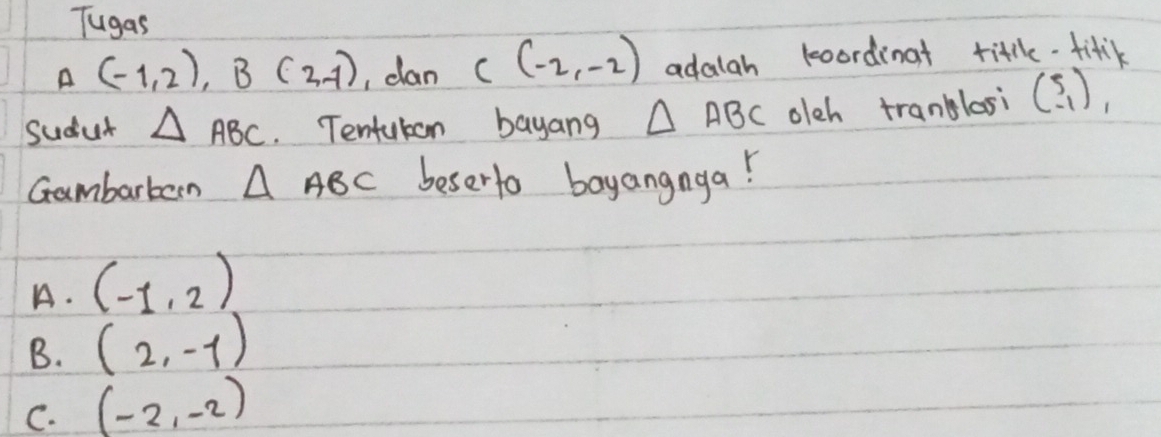 Tugas
A (-1,2), B (2,-1), dan C (-2,-2) adalah koordinat titik-titik
sudut △ ABC. Tentukan bayang △ ABC oleh translasi (5 -1),
Gambarkan △ ABC beserta bayangnga!
A. (-1, 2)
B. (2, -1)
C. (-2, -2)